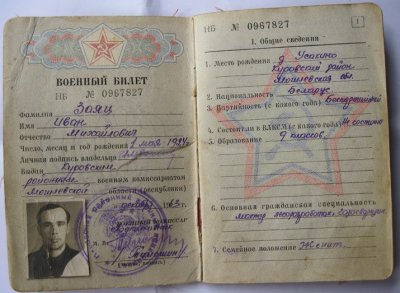 ВОЕННЫЙ БИЛЕТ
НБ № 0967827
Фамилия Заяц
Имя Иван
Отчество Михайлович
Число, месяц и год рождения 1 мая 1924
Личная подпись владельца
Выдан Кировским
районным военным комиссариатом
Могилевской области (Республики)
63 г.
Военный комиссар
М. П.
НБ № 0967827
1
I. Общие сведения
1. Место рождения д. Усакино
Кировский район
Могилевская обл.
2. Национальность Беларус
3. Партийность (с какого года) Беспартийный
4. Состоит ли в ВЛКСМ (с какого года) Не состоит
5. Образование 9 классов.
6. Основная гражданская специальность
мастер
7. Семейное положение Женат.